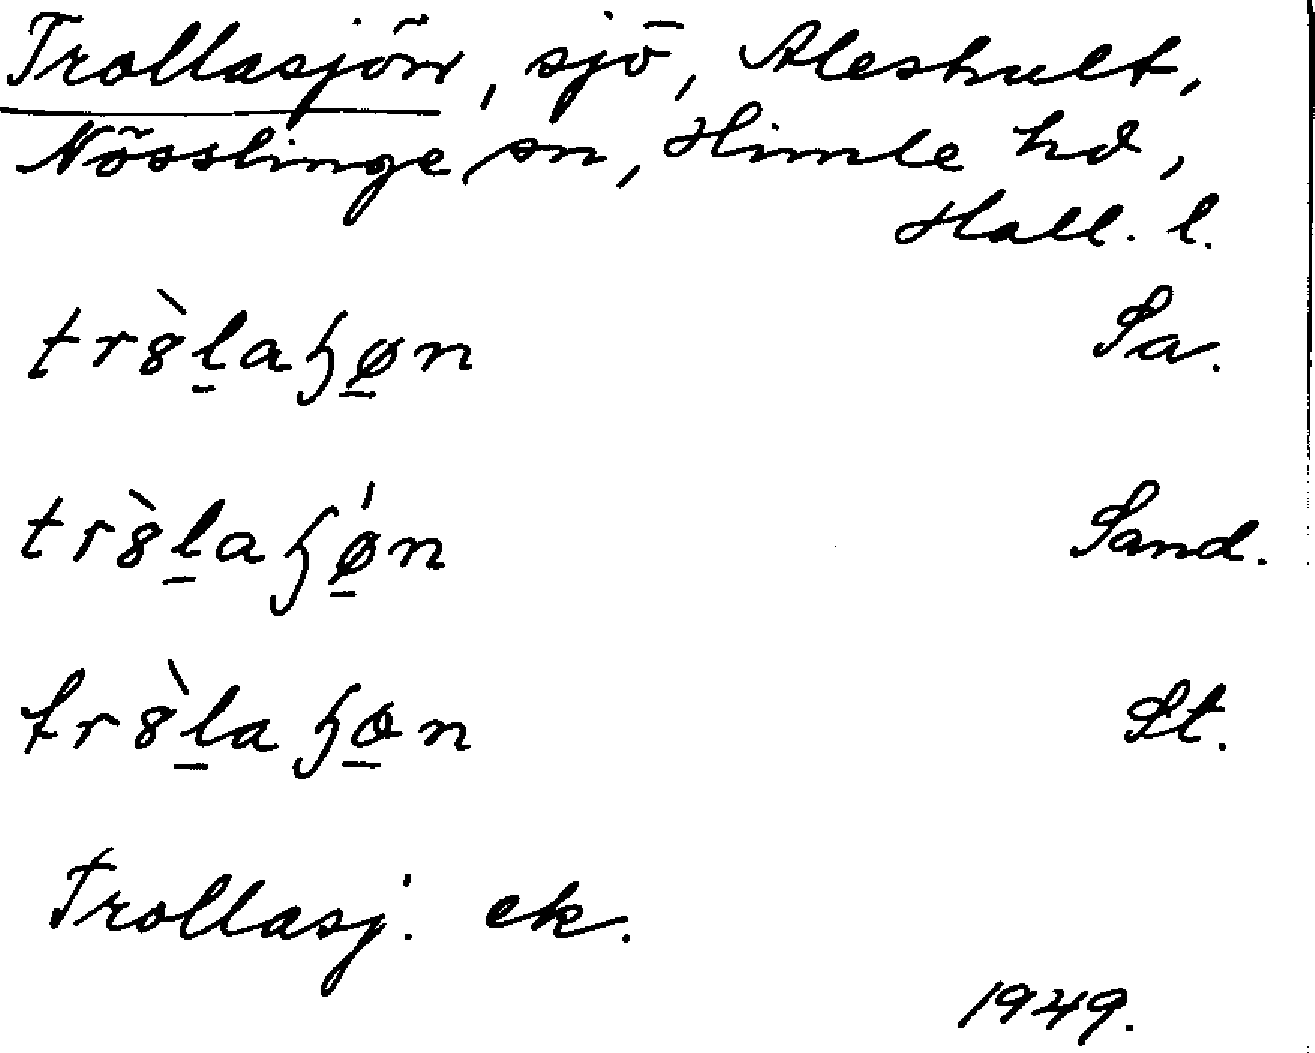 Trollasjön, sjö, Aleshult,
Nösslinge sn, Himle hd,
Hall. l.
tr8̀l̠aɧø̠n Sa.
tr8̀l̠aɧǿ̠n Sand.
tr8̀l̠aɧo̠n St.
Trollasj. ek.
1949.